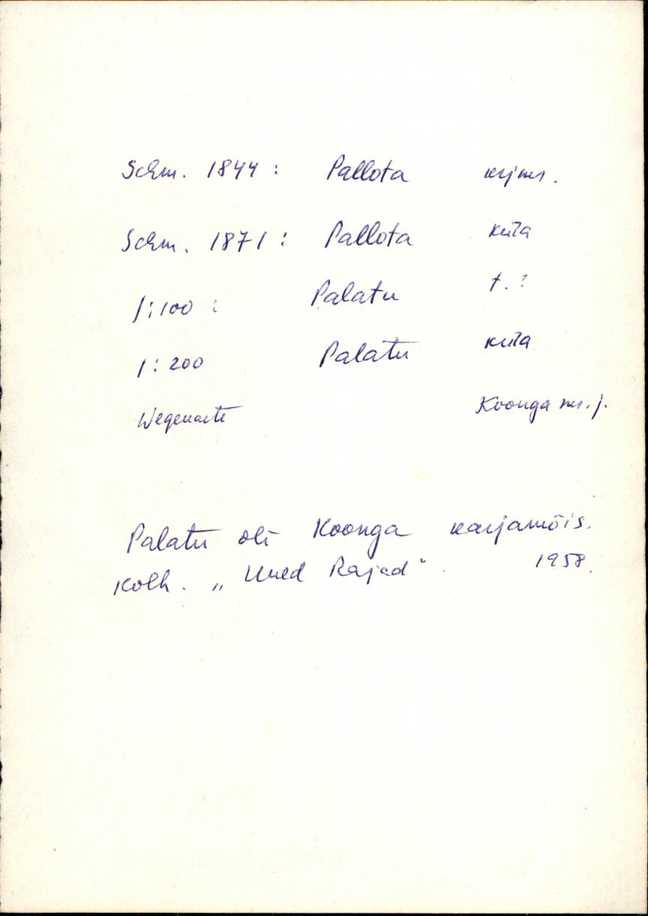 Schm. 1844 : Pallota krjms.
Schm. 1871 : Pallota küla
1:100 : Palatu t. :
1:200 Palatu küla
Wegenaite Koonga ms. j.
Palatu oli Koonga karjamõis.
Kolh. „Uued Rajad“. 1958.